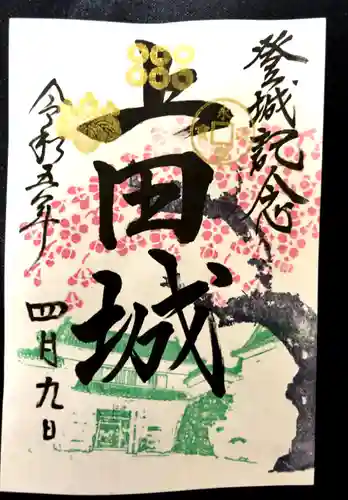 登城記念
上田城
令和五年
四月九日